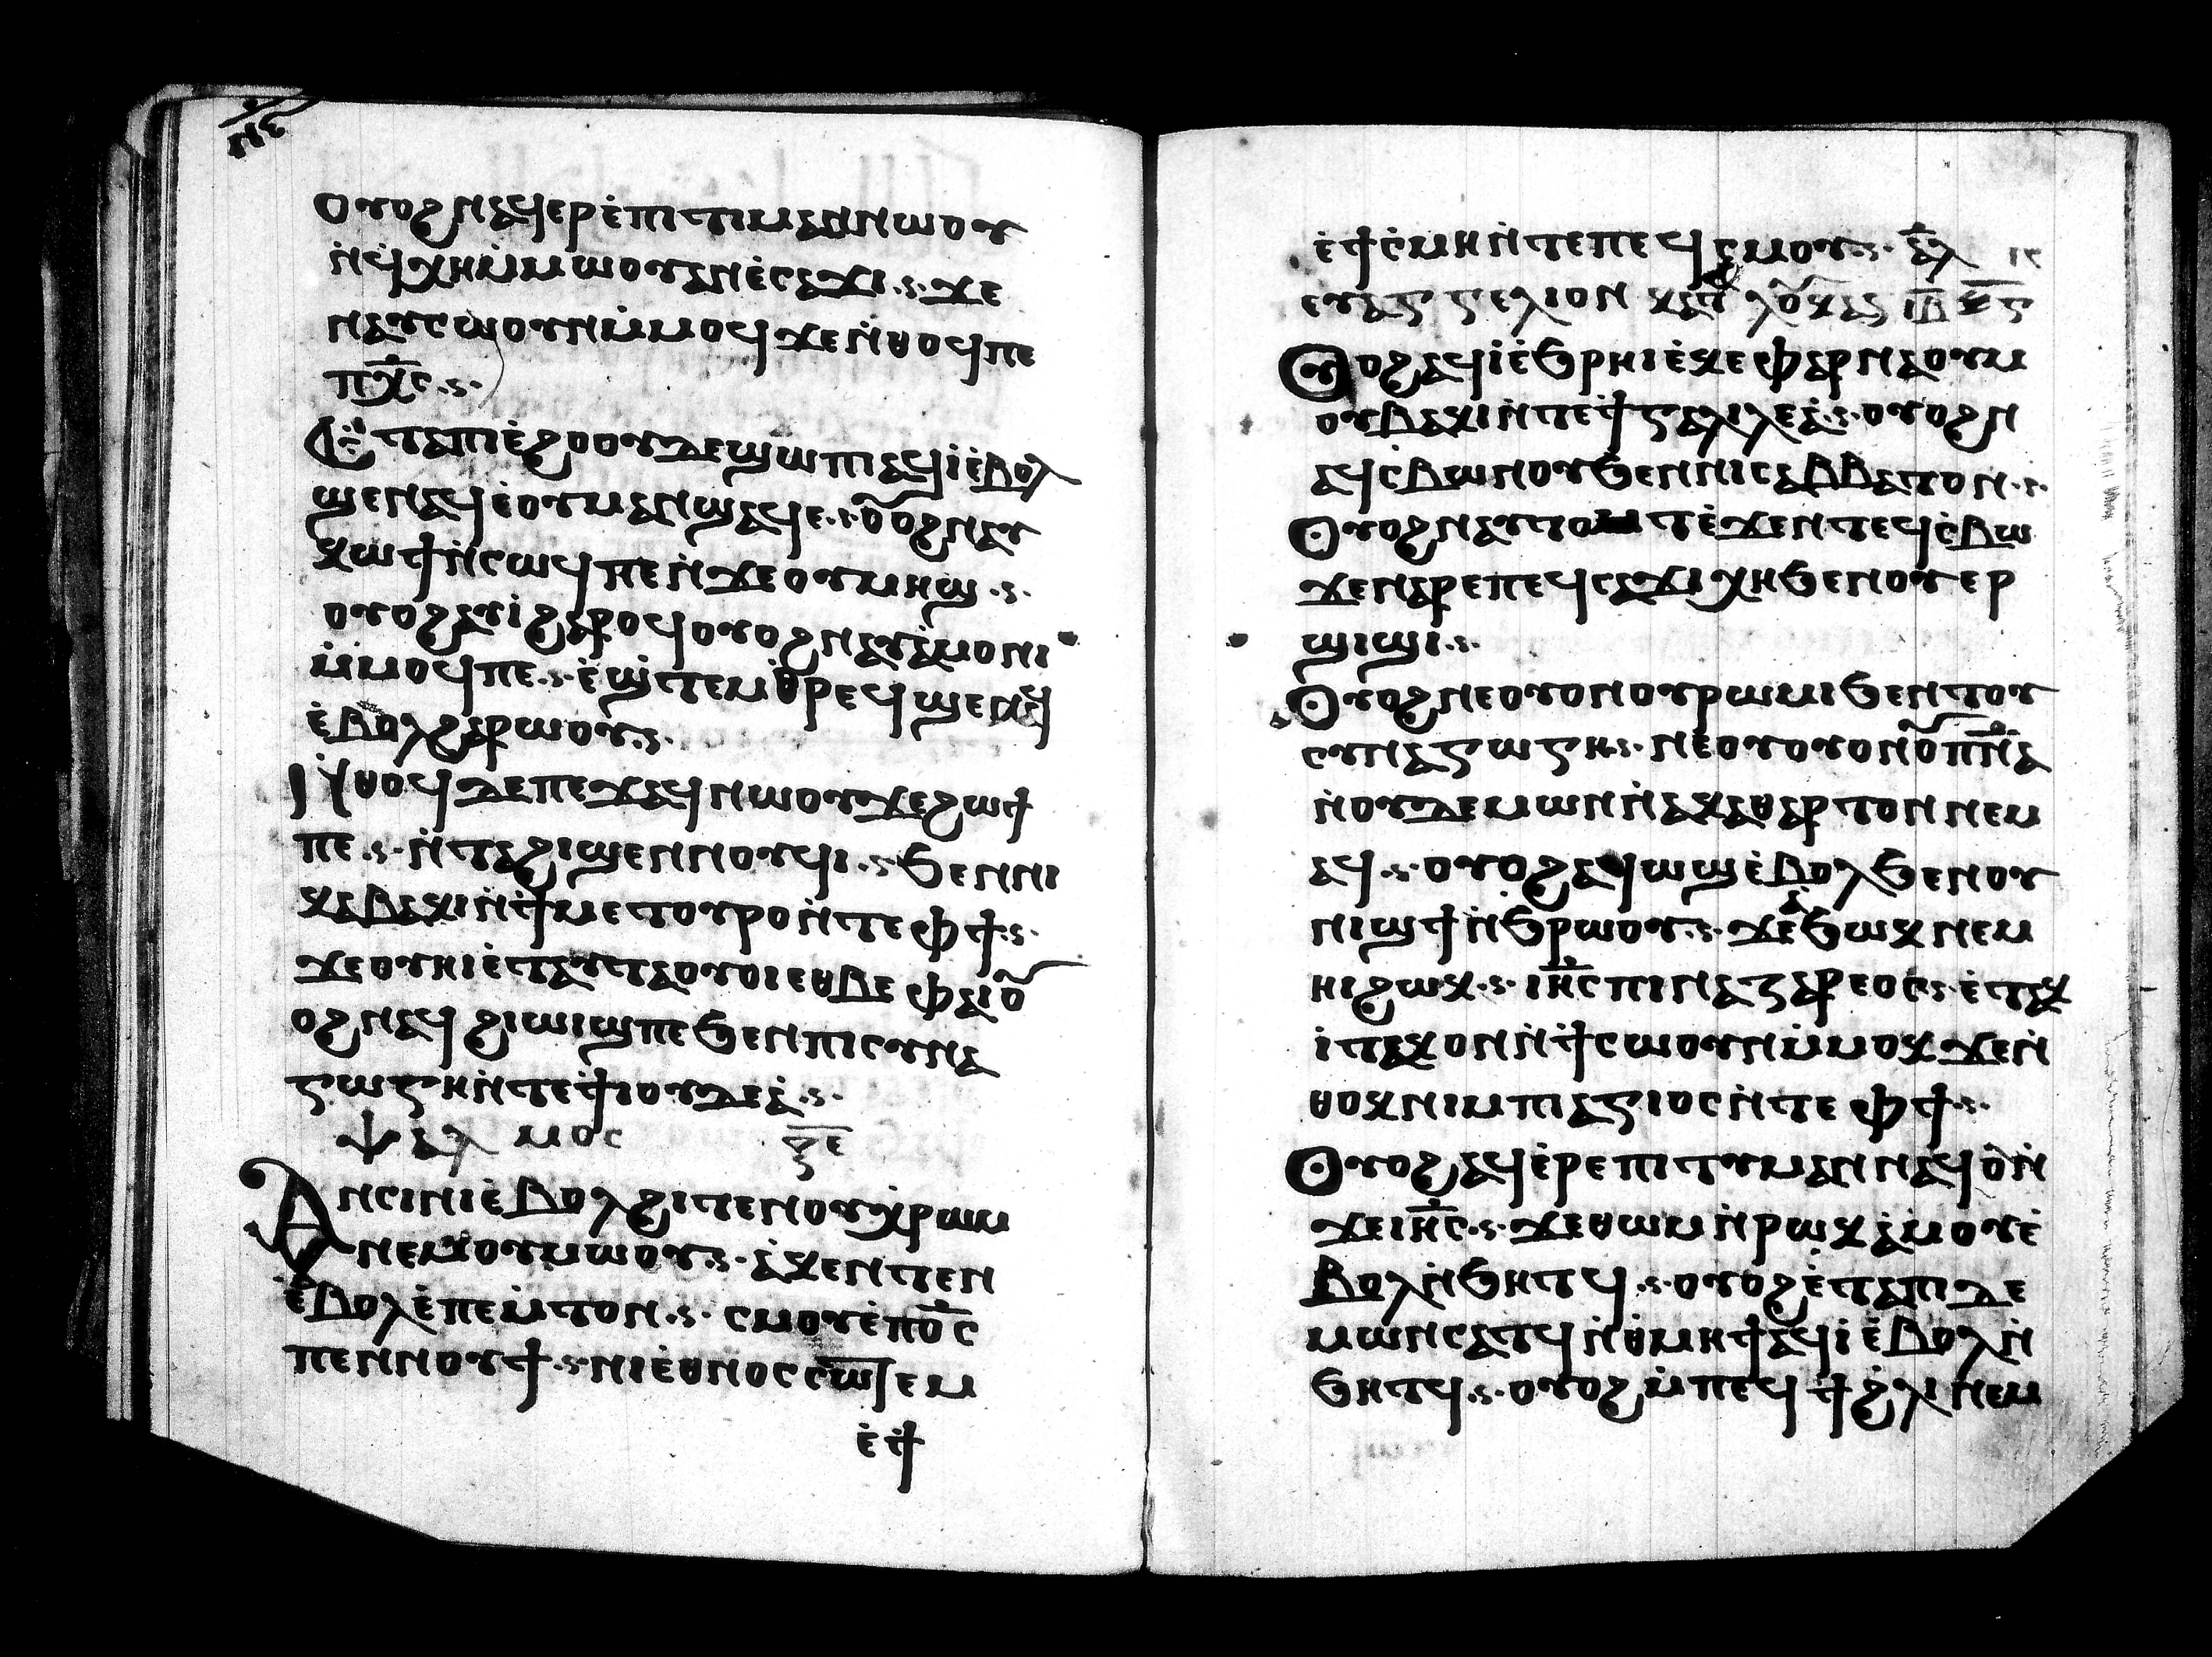 ⲛⲉ
ⲟⲩⲟϩ ⲛⲁϥⲉⲣⲉ̀ⲡⲓⲧⲓⲙⲁⲛ ⲛⲱⲟⲩ
ⲛ̀ϥ̀ⲭⲏ ⲙ̀ⲙⲱⲟⲩ ⲁⲛ ⲉ̀ⲥⲁϫⲓ ϫⲉ
ⲛⲁⲩⲥⲱⲟⲩⲛ ⲙ̀ⲙⲟϥ ϫⲉ ⲛ̀ⲑⲟϥ ⲡⲉ
ⲡⲭ̅ⲥ
Ⲉⲧⲁ ⲡⲓⲉ̀ϩⲟⲟⲩ ⲇⲉ ϣⲱⲡⲓ ⲁϥⲓ̀ ⲉ̀ⲃⲟⲗ
ϣⲉⲛⲁϥ ⲉ̀ⲟⲩⲙⲁ ⲛ̀ϣⲁϥⲉ ⲟⲩⲟϩ ⲛⲁⲩ
ⲕⲱϯ ⲛ̀ⲥⲱϥ ⲡⲉ ⲛ̀ϫⲉ ⲟⲩⲙⲏϣ
ⲟⲩⲟϩ ⲁⲩⲓ̀ ϩⲁⲣⲟϥ ⲟⲩⲟϩ ⲛⲁⲩⲁ̀ⲙⲟⲛⲓ
ⲙ̀ⲙⲟϥ ⲡⲉ ⲉ̀ϣⲧⲉⲙⲑⲣⲉϥϣⲉⲛⲁϥ
ⲉ̀ⲃⲟⲗϩⲁⲣⲱⲟⲩ
Ⲛ̀ⲑⲟϥ ⲇⲉ ⲡⲉϫⲁϥ ⲛⲱⲟⲩ ϫⲉ ϩⲱϯ
ⲡⲉ ⲛ̀ⲧⲁϩⲓϣⲉⲛⲛⲟⲩϥⲓ ϧⲉⲛ ⲛⲓ
ⲕⲉⲃⲁⲕⲓ ⲛ̀ϯⲙⲉⲧⲟⲩⲣⲟ ⲛ̀ⲧⲉ ⲫϯ
ϫⲉ ⲟⲩⲏⲓ ⲉ̀ⲧⲁⲩⲧⲁⲟⲩⲟⲓ ⲉⲑⲃⲉ ⲫⲁⲓ ⲟⲩ
ⲟϩ ⲛⲁϥϩⲓⲱⲓϣ ⲡⲉ ϧⲉⲛ ⲡⲓⲥⲩⲛⲁ
ⲅⲱⲅⲏ ⲛ̀ⲧⲉ ϯⲓⲟⲩⲇⲉⲁ̀
ⲯⲁⲗⲙⲟⲥ ⲝ̅ⲉ̅
Ⲁⲛⲥⲓⲛⲓ ⲉ̀ⲃⲟⲗϩⲓⲧⲉⲛ ⲟⲩⲭ̀ⲣⲱⲙ
ⲛⲉⲙ ⲟⲩⲙⲱⲟⲩ ⲁ̀ⲕⲉⲛⲧⲉⲛ
ⲉ̀ⲃⲟⲗ ⲉ̀ⲡⲉⲙ̀ⲧⲟⲛ ⲥⲙⲟⲩ ⲉ̀ⲡⲟ̅ⲥ
ⲡⲉⲛⲛⲟⲩϯ ⲛⲓⲉ̀ⲑⲛⲟⲥ ⲥⲱⲧⲉⲙ
ⲉ̀ϯ
ⲉ̀ϯⲥ̀ⲙⲏ ⲛ̀ⲧⲉ ⲡⲉϥⲥⲙⲟⲩ ⲁ̅ⲗ̅
ⲉⲩⲁⲅⲅⲉⲗⲓⲟⲛ ⲕⲁⲧⲁ ⲗⲟⲩⲕⲁⲥ ⲓ̅ⲃ̅ ⲕ̅ⲅ̅
Ⲟⲩⲟϩ ⲁϥⲓ̀ ⲉ̀ϧⲣⲏⲓ ⲉ̀ⲕⲉⲫⲁⲣⲛⲁⲟⲩⲙ
ⲟⲩⲃⲁⲕⲓ ⲛ̀ⲧⲉ ϯⲅⲁⲗⲓⲗⲉⲁ̀ ⲟⲩⲟϩ ⲛ
ⲁϥⲥ̀ⲃⲱ ⲛⲟⲩ ϧⲉⲛ ⲛⲓⲥⲁⲃⲃⲁⲧⲟⲛ
Ⲟⲩⲟϩ ⲛⲁⲩⲧⲟ ⲧ ⲉ̀ϫⲉⲛ ⲧⲉϥⲥ̀ⲃⲱ
ϫⲉ ⲛⲁⲣⲉ ⲡⲉϥⲥⲁϫⲓ ⲭⲏ ϧⲉⲛ ⲟⲩⲉⲣ
ϣⲓϣⲓ
Ⲟⲩⲟϩ ⲛⲉ ⲟⲩⲟⲛ ⲟⲩⲣⲱⲙⲓ ϧⲉⲛ ⲧⲟⲩ
ⲥⲩⲛⲁⲅⲱⲅⲏ ⲛⲉ ⲟⲩⲟⲩⲟⲛ ⲟⲩⲡⲛ̅ⲁ
ⲛ̀ⲟⲩⲇⲉⲙⲱⲛ ⲛ̀ⲁⲕⲁⲑⲁⲣⲧⲟⲛ ⲛⲉⲙ
ⲁϥ ⲟⲩⲟϩ ⲁϥⲱϣ ⲉ̀ⲃⲟⲗ ϧⲉⲛ ⲟⲩ
ⲛⲓϣϯ ⲛ̀ϧⲣⲱⲟⲩ ϫⲉ ⲁϧⲱⲕ ⲛⲉⲙ
ⲏⲓ ϩⲱⲕ ⲓⲏ̅ⲥ ⲡⲓⲛⲁⲍⲁⲣⲉⲟⲥ ⲉ̀ⲧⲁⲕ
ⲓ̀ ⲉ̀ⲧⲁⲕⲟⲛ ⲛ̀ϯⲥⲱⲟⲩⲛ ⲙ̀ⲙⲟⲕ ϫⲉ ⲛ̀
ⲑⲟⲕ ⲛⲓⲙ ⲡⲓⲁⲅⲓⲟⲥ ⲛ̀ⲧⲉ ⲫϯ
Ⲟⲩⲟϩ ⲁϥⲉ̀ⲣⲉⲡⲓⲧⲩⲙⲁⲛ ⲛⲁϥ ⲟⲛ̀
ϫⲉ ⲓⲏ̅ⲥ ϫⲉ ⲑⲱⲙ ⲛ̀ⲣⲱⲕ ⲁ̀ⲙⲟⲩ ⲉ̀
ⲃⲟⲗ ⲛ̀ϧⲏⲧϥ ⲟⲩⲟϩ ⲉ̀ⲧⲁ ⲡⲓⲇⲉ
ⲙⲱⲛ ⲥⲁⲧϥ ⲛ̀ⲑⲙⲏϯ ⲁϥⲓ̀ ⲉ̀ⲃⲟⲗ ⲛ̀
ϧⲏⲧϥ ⲟⲩⲟϩ ⲙ̀ⲡⲉϥϯϩ̀ⲗⲓ ⲛⲉⲙ